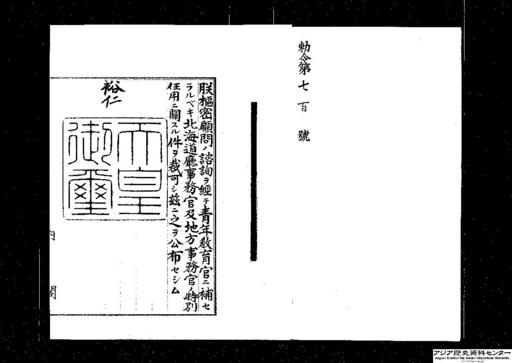 勅令第七百號
朕樞密顧問ノ諮詢ヲ經テ青年教育官ニ補セ
ラルベキ北海道廳事務官及地方事務官ノ特別
任用ニ關スル件ヲ裁可シ茲ニ之ヲ公布セシム
裕仁
天皇
御璽
内閣
アジア歴史資料センター
Japan Center for Asian Historical Records